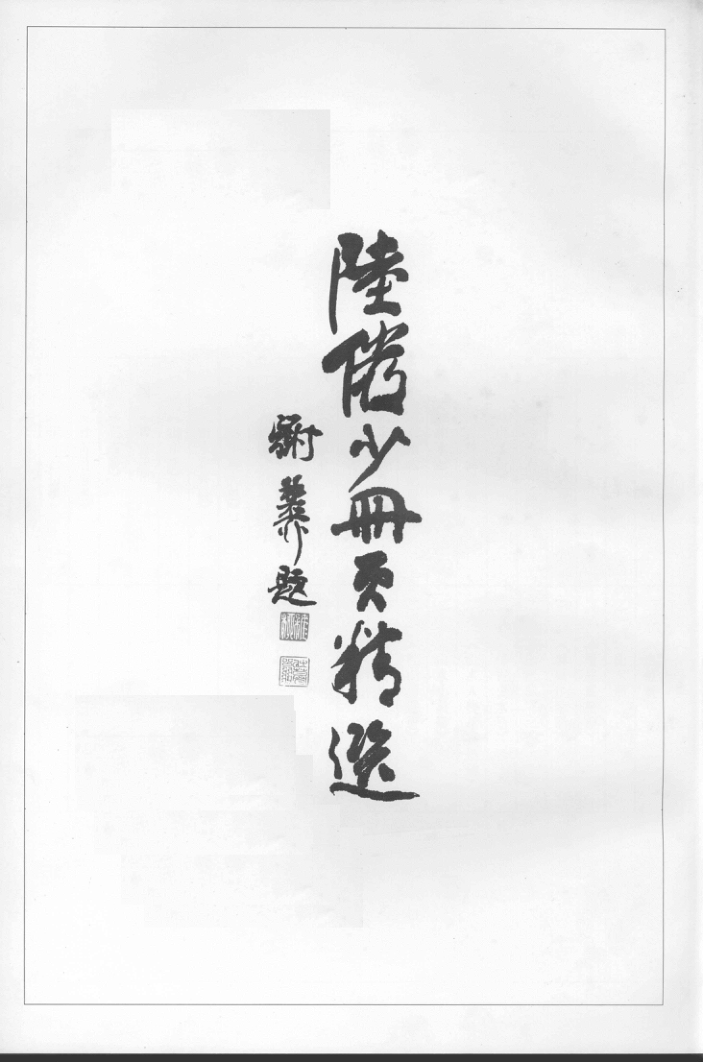 陸儼少冊頁精選
謝稚柳題